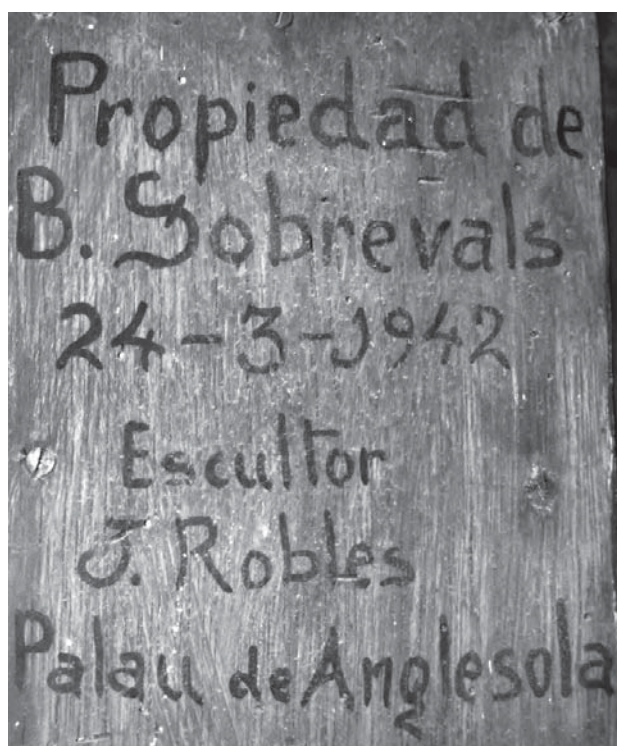 Propiedad de
B. Sobrevals
24-3-1942
Escultor
J. Robles
Palau de Anglesola